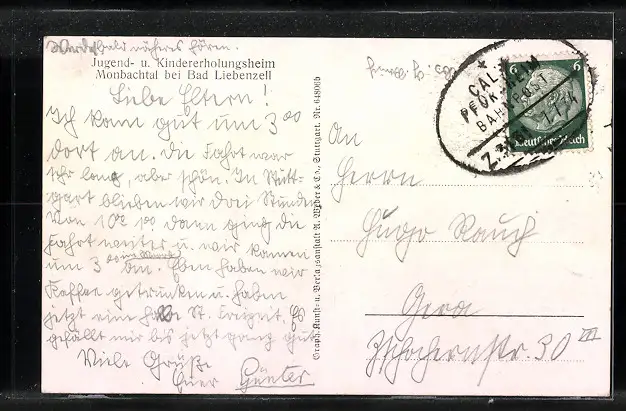 Werde bald näheres hören.
Jugend- u. Kindererholungsheim
Monbachtal bei Bad Liebenzell
Liebe Eltern!
Ich kam gut um 3⁰⁰
dort an. Die Fahrt war
sehr lang, aber schön. In Stutt-
gart blieben wir drei Stunden
von 10 dann ging die
Fahrt weiter u. wir kamen
um 3⁰⁰ an. Eben haben wir
Kaffee getrunken u. haben
jetzt eine St. Freizeit. Es
gefällt mir bis jetzt ganz gut.
Viele Grüße
Euer Günter
Graph. Kunst- u. Verlagsanstalt A. Weber & Co., Stuttgart. Nr. 64806b
CALW
PFORZHEIM
BAHNPOST
6 6
Deutsches Reich
An
Herrn
Hugo Rauch
Gera
Zschochernstr. 30 III